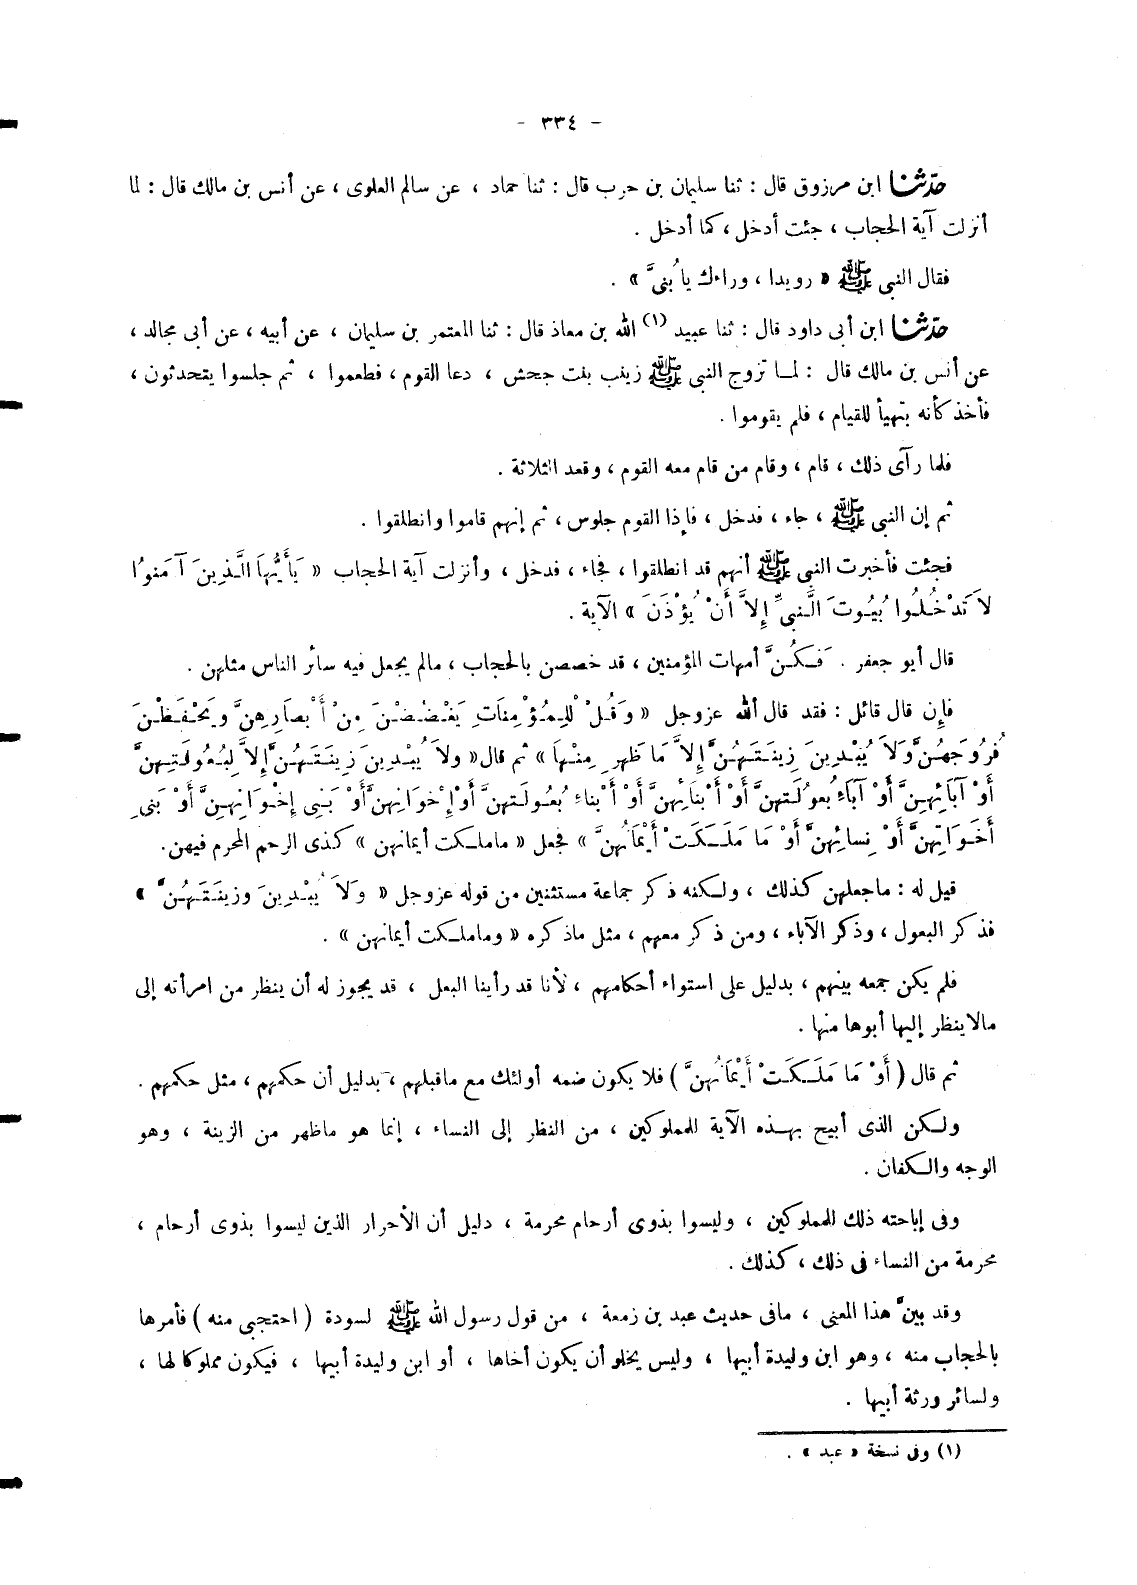 - ٣٣٤ -
حدّثنا ابن مرزوق قال : ثنا سليمان بن حرب قال : ثنا حماد ، عن سالم العلوى ، عن أنس بن مالك قال : لما
أنزلت آية الحجاب ، جئت أدخل ، كما أدخل .
فقال النبى ﷺ « رويدا ، وراءك يا بُنىَّ » .
حدّثنا ابن أبى داود قال : ثنا عبيد (١) الله بن معاذ قال : ثنا المعتمر بن سليمان ، عن أبيه ، عن أبى مجالد ،
عن أنس بن مالك قال : لما تزوج النبى ﷺ زينب بنت جحش ، دعا القوم ، فطعموا ، ثم جلسوا يتحدثون ،
فأخذ كأنه يتهيأ للقيام ، فلم يقوموا .
فلما رآى ذلك ، قام ، وقام من قام معه القوم ، وقعد الثلاثة .
ثم إن النبى ﷺ ، جاء ، فدخل ، فإذا القوم جلوس ، ثم إنهم قاموا وانطلقوا .
فجئت فأخبرت النبى ﷺ أنهم قد انطلقوا ، فجاء ، فدخل ، وأنزلت آية الحجاب « يَأَيُّهَا الَّذِينَ آمَنُوا
لاَ تَدْخُلُوا بُيُوتَ النَّبىِّ إِلاَّ أَنْ يُؤْذَنَ » الآية .
قال أبو جعفر . فَكُنَّ أمهات المؤمنين ، قد خصصن بالحجاب ، مالم يجعل فيه سائر الناس مثلهن .
فإن قال قائل : فقد قال الله عزوجل « وَقُلْ لِلْمُؤْمِنَاتِ يَغْضُضْنَ مِنْ أَبْصَارِهِنَّ وَيَحْفَظْنَ
فُرُوجَهُنَّ وَلاَ يُبْدِينَ زِينَتَهُنَّ إِلاَّ مَا ظَهَرَ مِنْهَا » ثم قال « وَلاَ يُبْدِينَ زِينَتَهُنَّ إِلاَّ لِبُعُولَتِهِنَّ
أَوْ آبَائِهِنَّ أَوْ آبَاءِ بُعُولَتِهِنَّ أَوْ أَبْنَائِهِنَّ أَوْ أَبْنَاءِ بُعُولَتِهِنَّ أَوْ إِخْوَانِهِنَّ أَوْ بَنِى إِخْوَانِهِنَّ أَوْ بَنِى
أَخَوَاتِهِنَّ أَوْ نِسائِهِنَّ أَوْ مَا مَلَكَتْ أَيْمَانُهُنَّ » فجعل « ماملكت أيمانهن » كذى الرحم المحرم فيهن.
قيل له : ماجعلهن كذلك ، ولكنه ذكر جماعة مستثنين من قوله عزوجل « وَلاَ يُبْدِينَ وزِينَتَهُنَّ »
فذكر البعول ، وذكر الآباء ، ومن ذكر معهم ، مثل ماذكره « وماملكت أيمانهن » .
فلم يكن جمعه بينهم ، بدليل على استواء أحكامهم ، لأنا قد رأينا البعل ، قد يجوز له أن ينظر من امرأته إلى
مالاينظر إليها أبوها منها .
ثم قال ( أَوْ مَا مَلَكَتْ أَيْمَانُهُنَّ ) فلا يكون ضمه أولئك مع ماقبلهم ، بدليل أن حكمهم ، مثل حكمهم .
ولكن الذى أبيح بهذه الآية للمملوكين ، من النظر إلى النساء ، إنما هو ماظهر من الزينة ، وهو
الوجه والكفان .
وفى إباحته ذلك للمملوكين ، وليسوا بذوى أرحام محرمة ، دليل أن الأحرار الذين ليسوا بذوى أرحام ،
محرمة من النساء فى ذلك ، كذلك .
وقد بينَّ هذا المعنى ، مافى حديث عبد بن زمعة ، من قول رسول الله ﷺ لسودة ( احتجبى منه ) فأمرها
بالحجاب منه ، وهو ابن وليدة أبيها ، وليس يخلو أن يكون أخاها ، أو ابن وليدة أبيها ، فيكون مملوكا لها ،
ولسائر ورثة أبيها .
(١) وفى نسخة « عبد » .